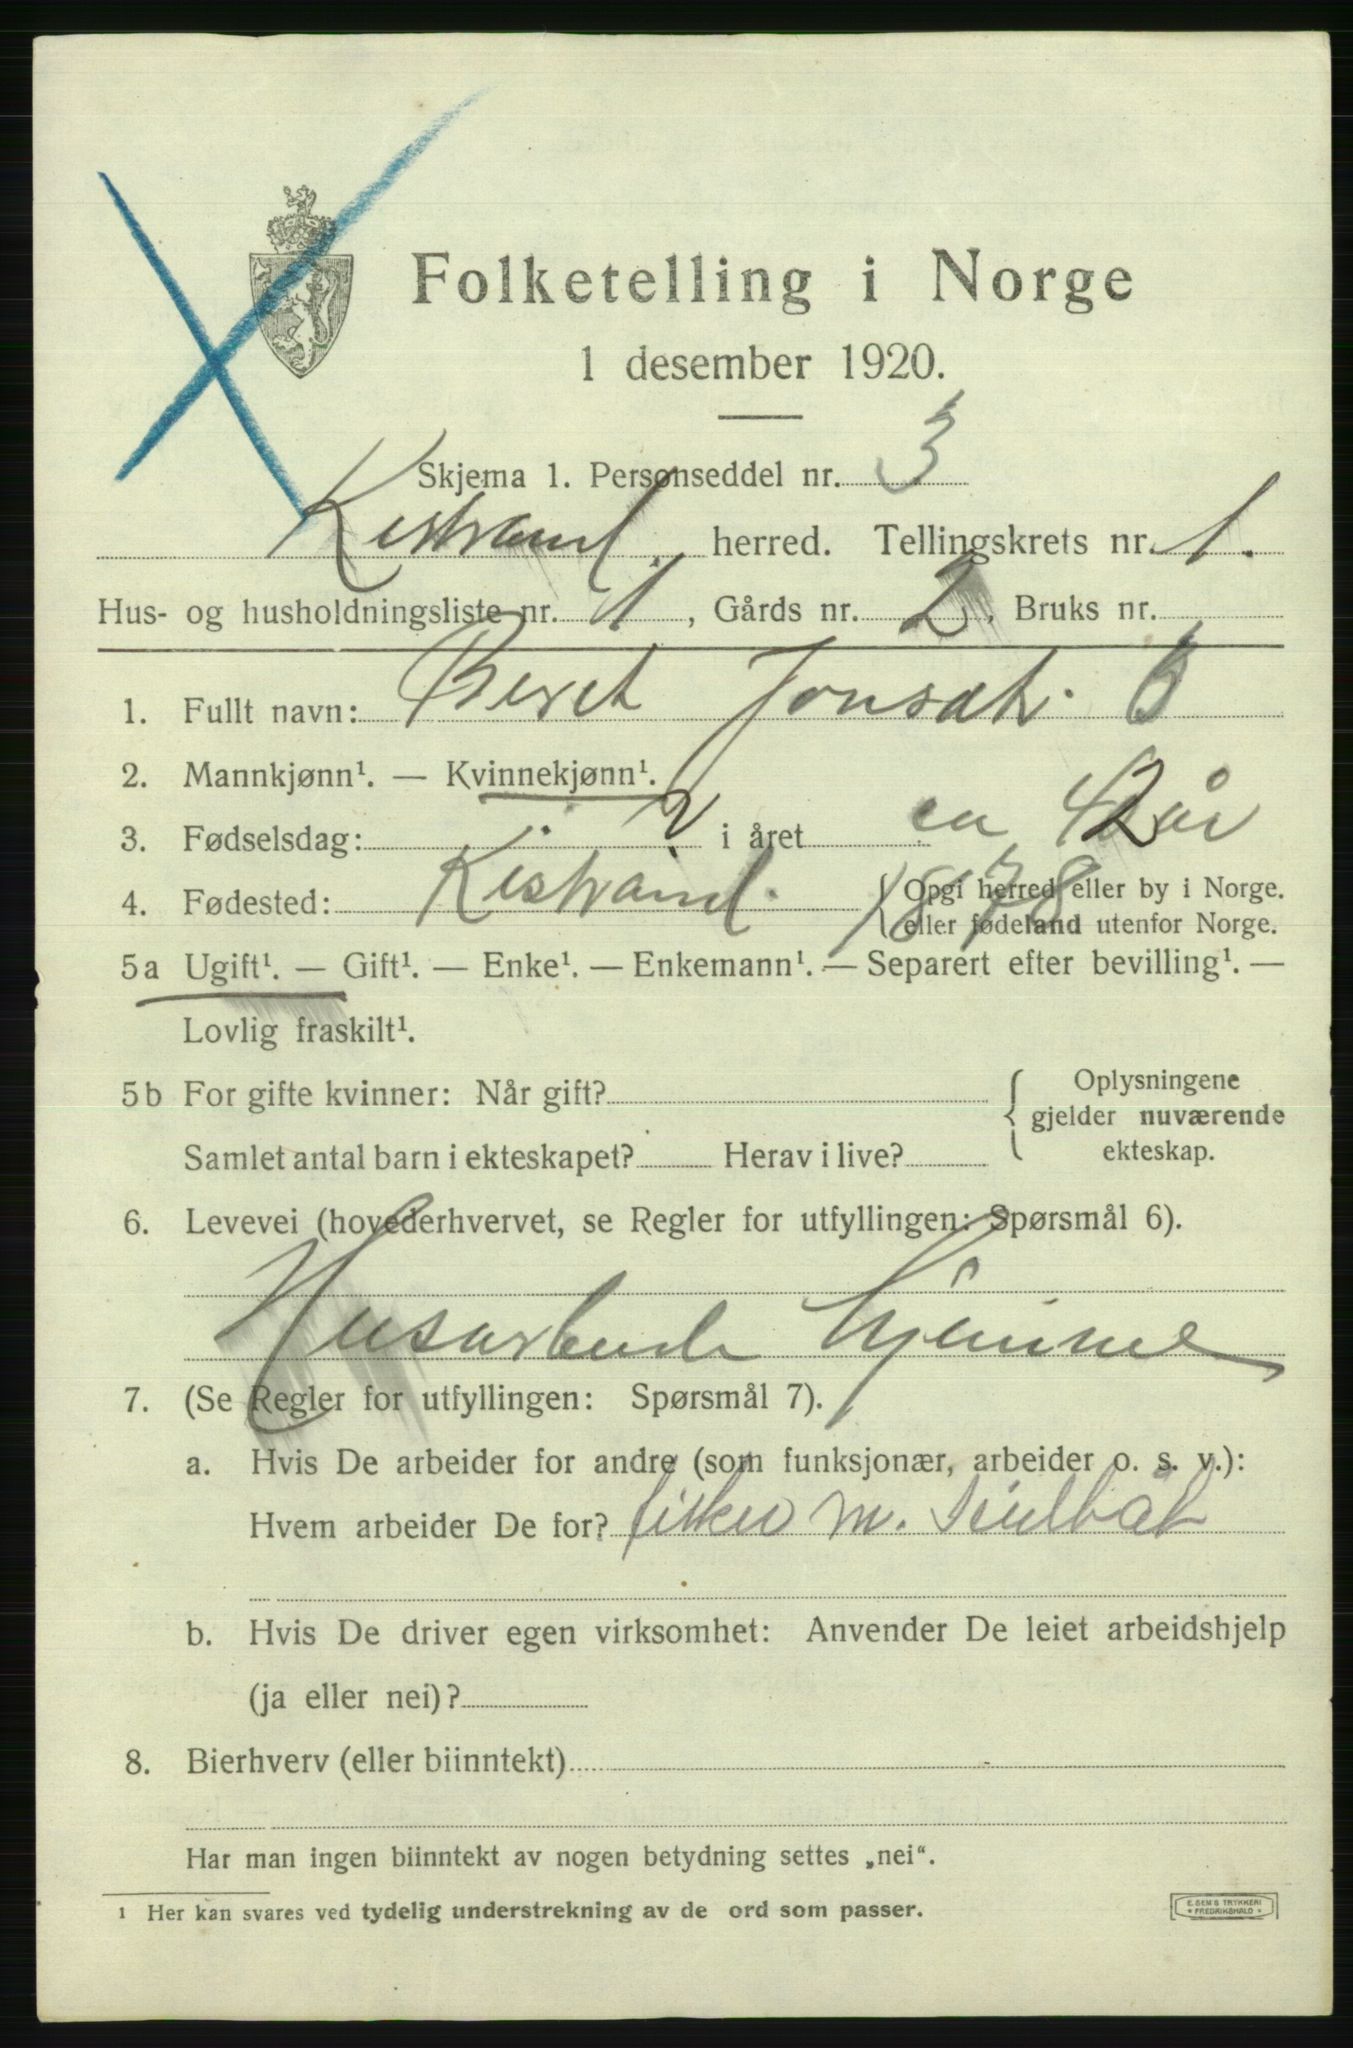 Folketelling i Norge
1 desember 1920.
Skjema 1. Personseddel nr. 3
Kistrand. herred. Tellingskrets nr. 1.
Hus- og husholdningsliste nr. 1, Gårds nr. 2, Bruks nr.
1. Fullt navn: Beret Jonsdtr. 6
2. Mannkjønn¹. — Kvinnekjønn¹.
3. Fødselsdag: ? i året ca 42 år
1878
4. Fødested: Kistrand. { Opgi herred eller by i Norge.
eller fødeland utenfor Norge.
5a Ugift¹. — Gift¹. — Enke¹. — Enkemann¹. — Separert efter bevilling¹. —
Lovlig fraskilt¹.
5b For gifte kvinner: Når gift? { Oplysningene
gjelder nuværende
Samlet antal barn i ekteskapet? Herav i live? ekteskap.
6. Levevei (hovederhvervet, se Regler for utfyllingen: Spørsmål 6).
Husarbeide hjemme
7. (Se Regler for utfyllingen: Spørsmål 7).
a. Hvis De arbeider for andre (som funksjonær, arbeider o. s. v.):
Hvem arbeider De for? fisker m.
b. Hvis De driver egen virksomhet: Anvender De leiet arbeidshjelp
(ja eller nei)?
8. Bierhverv (eller biinntekt)
Har man ingen biinntekt av nogen betydning settes „nei".
¹ Her kan svares ved tydelig understrekning av de ord som passer.
E. SEM'S TRYKKERI
* FREDRIKSHALD *